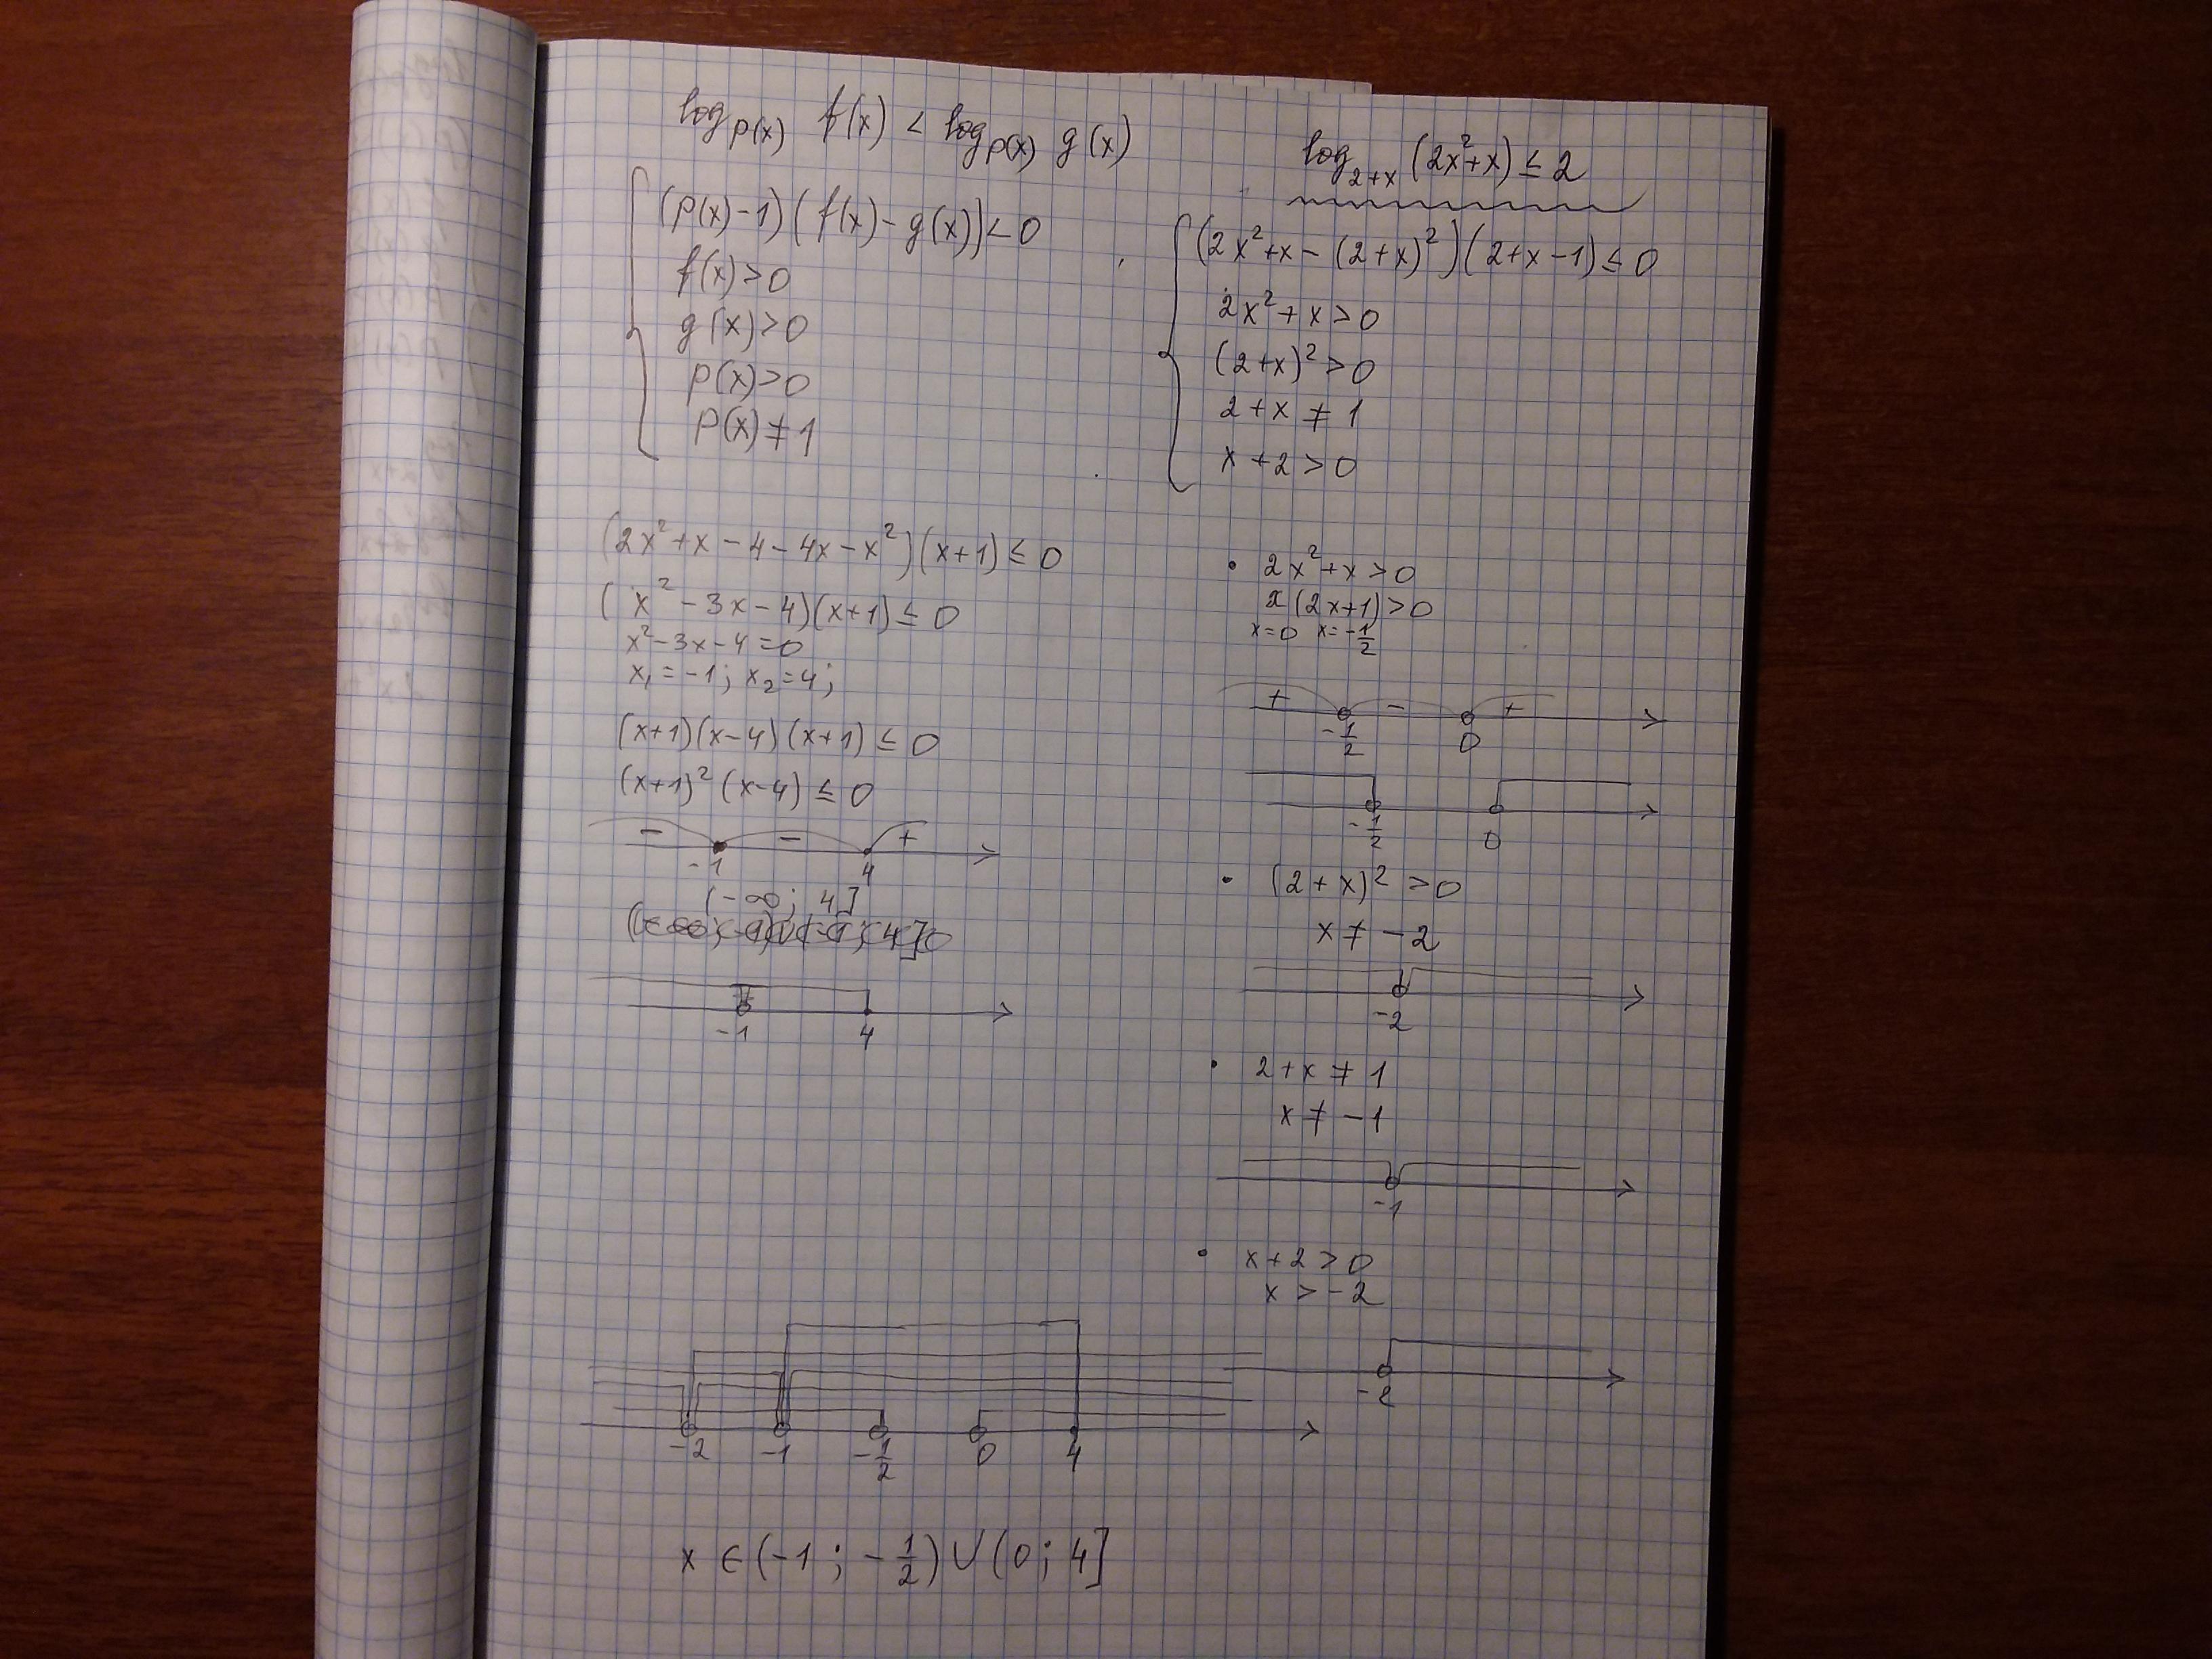 log_{p(x)} f(x) < log_{p(x)} g(x)
(p(x)-1)(f(x)-g(x))<0
f(x)>0
g(x)>0
p(x)>0
p(x)≠1
log_{2+x} (2x²+x) ≤ 2
(2x²+x-(2+x)²)(2+x-1)≤0
2x²+x>0
(2+x)²>0
2+x≠1
x+2>0
(2x²+x-4-4x-x²)(x+1)≤0
(x²-3x-4)(x+1)≤0
x²-3x-4=0
x₁=-1; x₂=4;
(x+1)(x-4)(x+1)≤0
(x+1)²(x-4)≤0
- - +
-1 4
(-∞; 4]
-1 4
• 2x²+x>0
x(2x+1)>0
x=0 x=-1/2
+ - +
-1/2 0
-1/2 0
• (2+x)²>0
x≠-2
-2
• 2+x≠1
x≠-1
-1
• x+2>0
x>-2
-2
-2 -1 -1/2 0 4
x∈(-1;-1/2)∪(0;4]